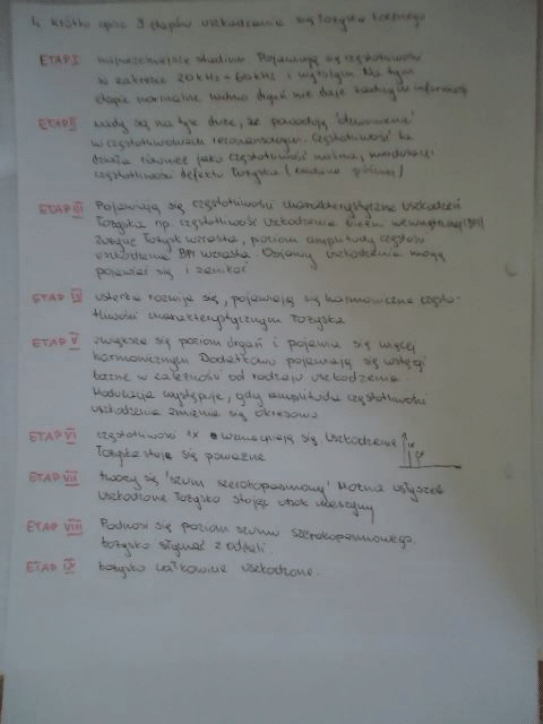 4. Krótko opisz 9 etapów uszkodzenia się łożyska tocznego
ETAP I najwcześniejsze stadium. Pojawiają się częstotliwości
w zakresie 20kHz - 60kHz i wyższym. Na tym
etapie normalne widmo drgań nie daje żadnych informacji
ETAP II wady są na tyle duże, że powodują 'dzwonienie'
w częstotliwościach rezonansowych. Częstotliwość ta
działa również jako częstotliwość nośna, modulując
częstotliwości defektu łożyska
ETAP III Pojawiają się częstotliwości charakterystyczne uszkodzeń
łożyska np. częstotliwość uszkodzenia bieżni wewnętrznej (BPI)
zużycie łożysk wzrasta, poziom amplitudy częstotl
uszkodzenia BPI wzrasta. Objawy uszkodzenia mogą
pojawiać się i zanikać
ETAP IV usterka rozwija się, pojawiają się harmoniczne często-
tliwości charakterystycznym łożyska
ETAP V zwiększa się poziom drgań i pojawia się więcej
harmonicznym Dodatkowo pojawiają się wstęgi
boczne w zależności od rodzaju uszkodzenia.
Modulacja występuje, gdy amplituda częstotliwości
uszkodzenia zmienia się okresowo
ETAP VI częstotliwości 1x wzmacniają się. Uszkodzenie
łożyska staje się poważne
ETAP VII tworzy się 'szum szerokopasmowy' Można usłyszeć
uszkodzone łożysko stojąc obok maszyny
ETAP VIII Podnosi się poziom szumu szerokopasmowego.
łożysko słychać z oddali.
ETAP IX łożysko całkowicie uszkodzone.